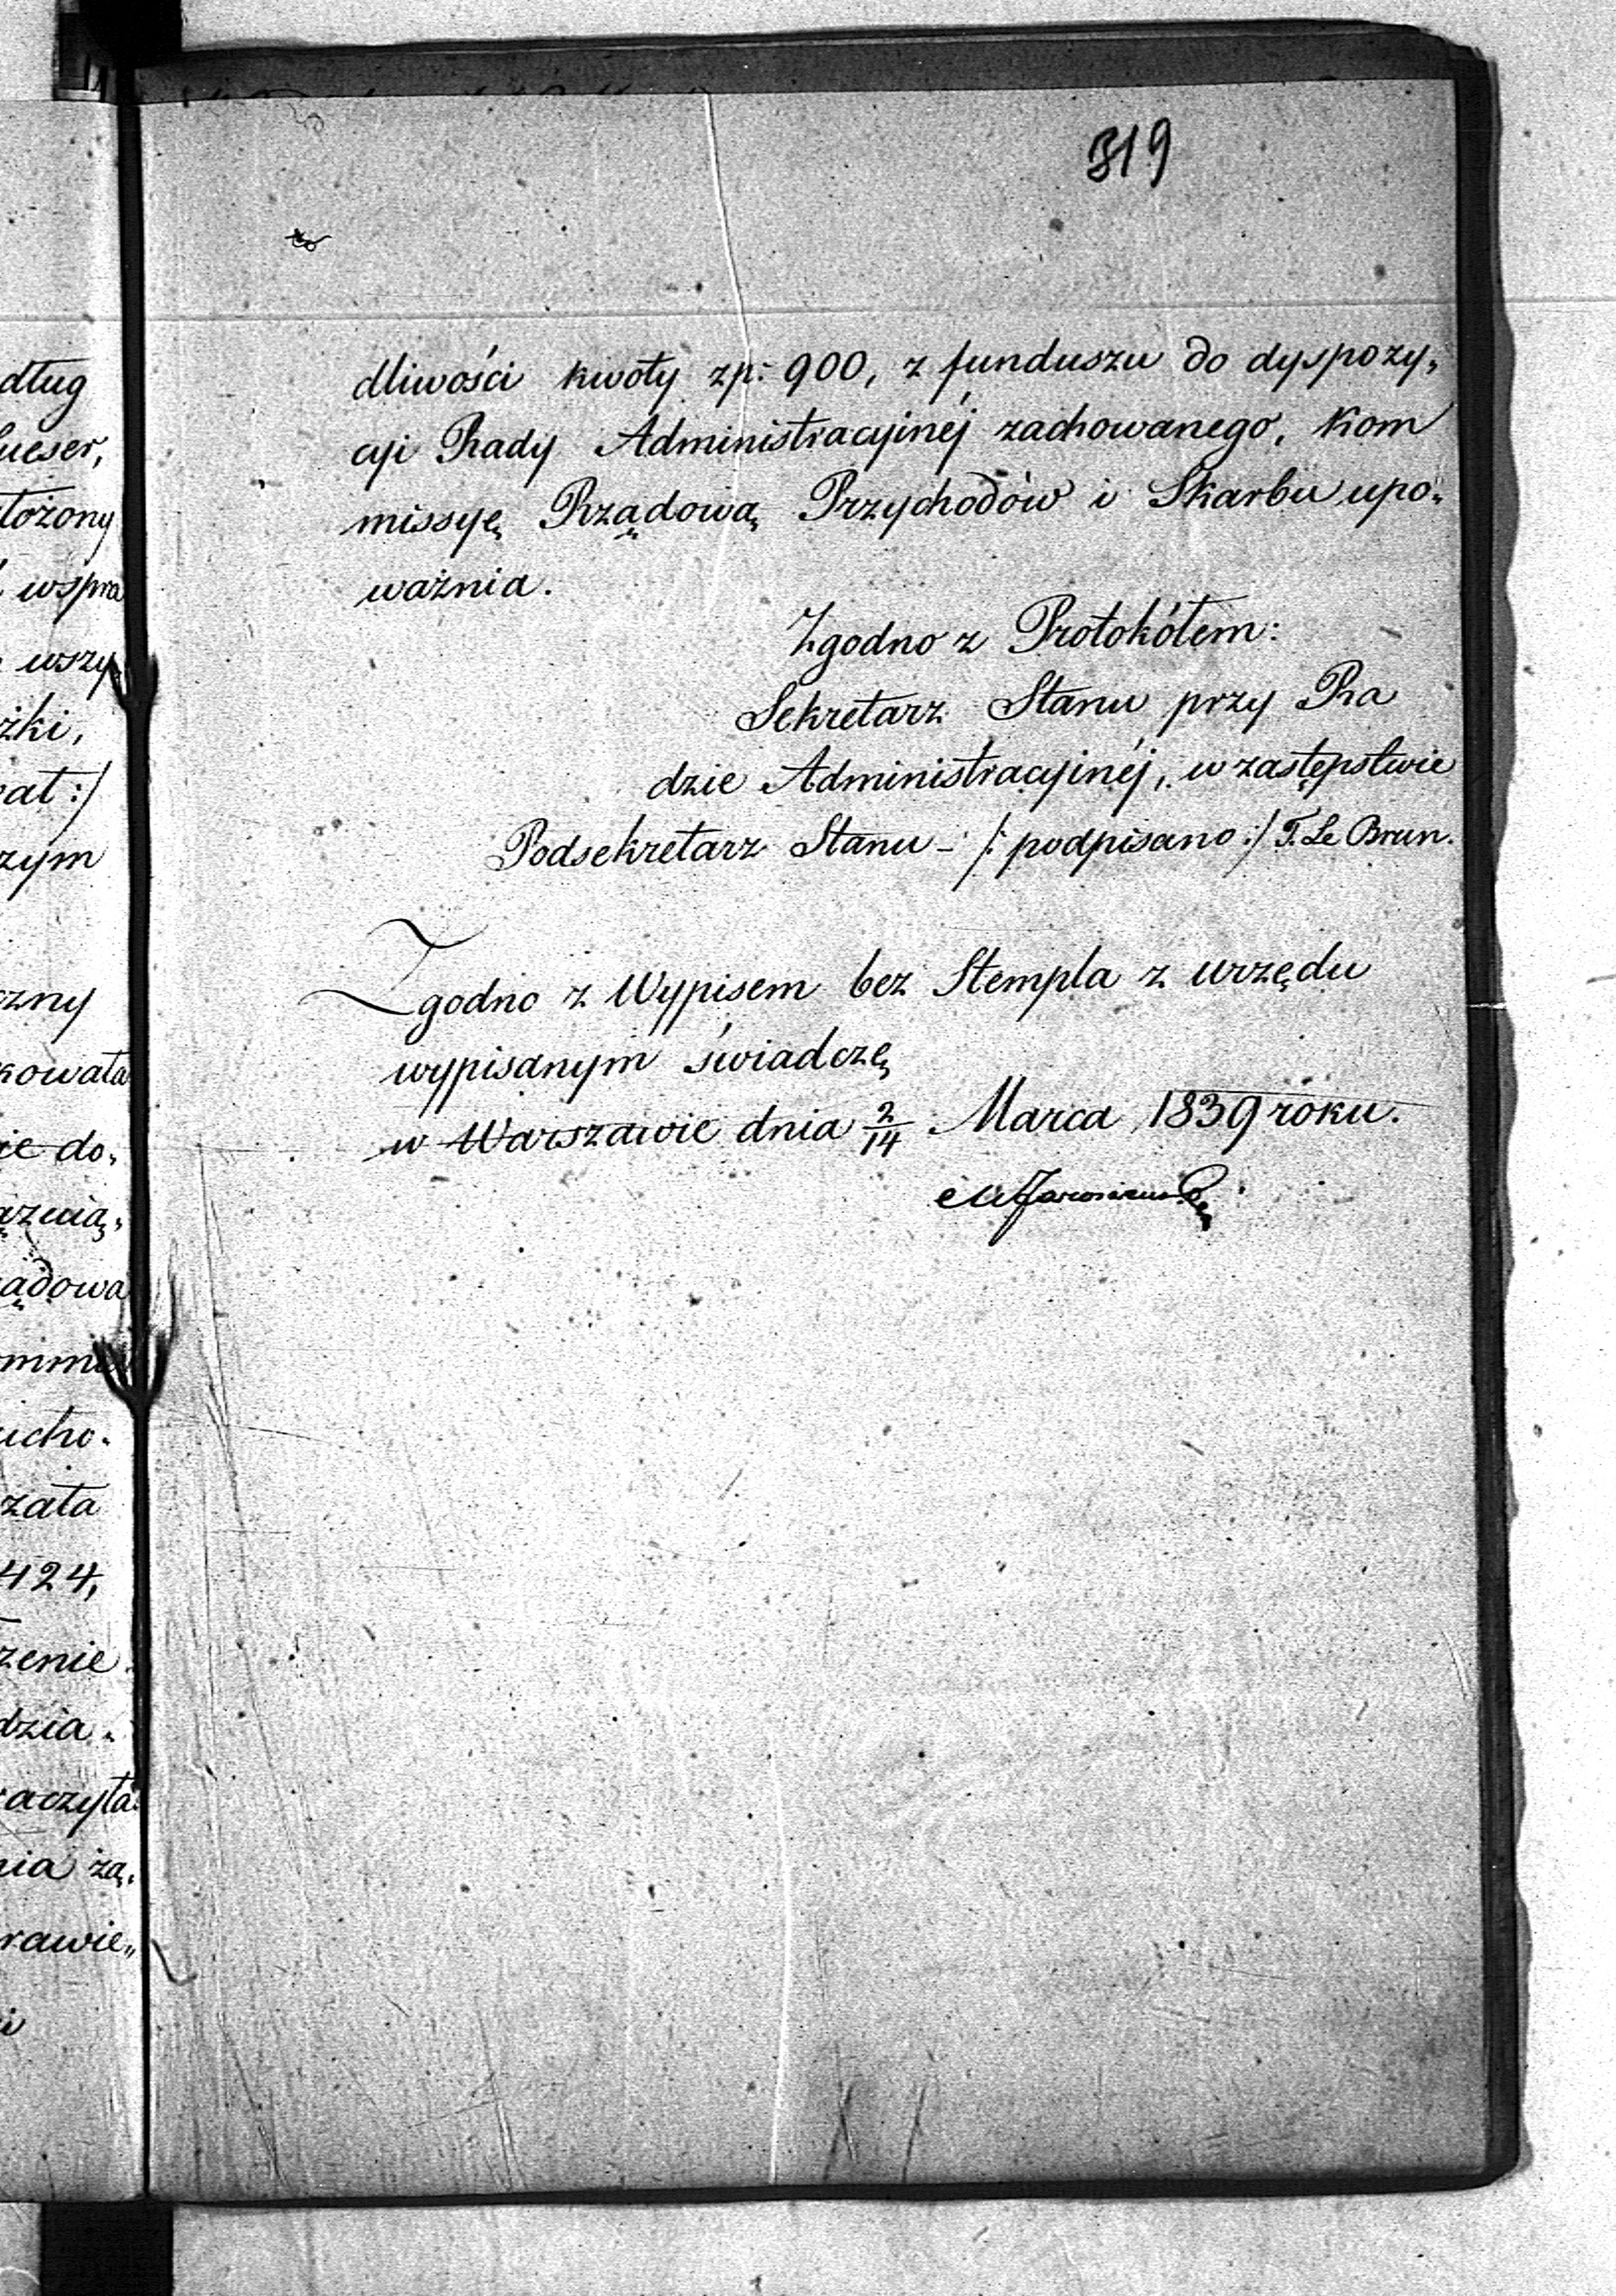 319
dług
łożony
wspra
wszy
żki,
zym
kowała
do,
ądowa
icho.
zała
424,
zenie
dzia.
aczyła
nia żą,
rawie,,
dliwości kwoty zp: 900, z funduszu do dyspozy,
cyi Rady Administracyjnéj zachowanego, Kom
missyę Rządową Przychodów i Skarbu upo,
ważnia.
Zgodno z Protokółem:
Sekretarz Stanu przy Ra
dzie Administracyjnéj, w zastępstwie
Podsekretarz Stanu - /: podpisano :/ T. Le Brun.
Zgodno z Wypisem bez Stempla z urzędu
wypisanym świadczę
w Warszawie dnia 2/14 Marca 1839 roku.